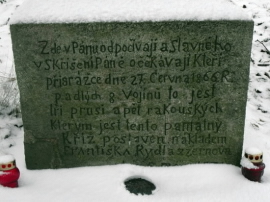 Zde v Pánu odpočívají a Slavného
v Skříšení Páně očekávají Kteří
při srážce dne 27. Června 1866 R.
padlých 8 Vojínů to jest
tři prusi a pět rakouských
Kterým jest tento pamatný
Kříž postaven nákladem
Františka Rydla z